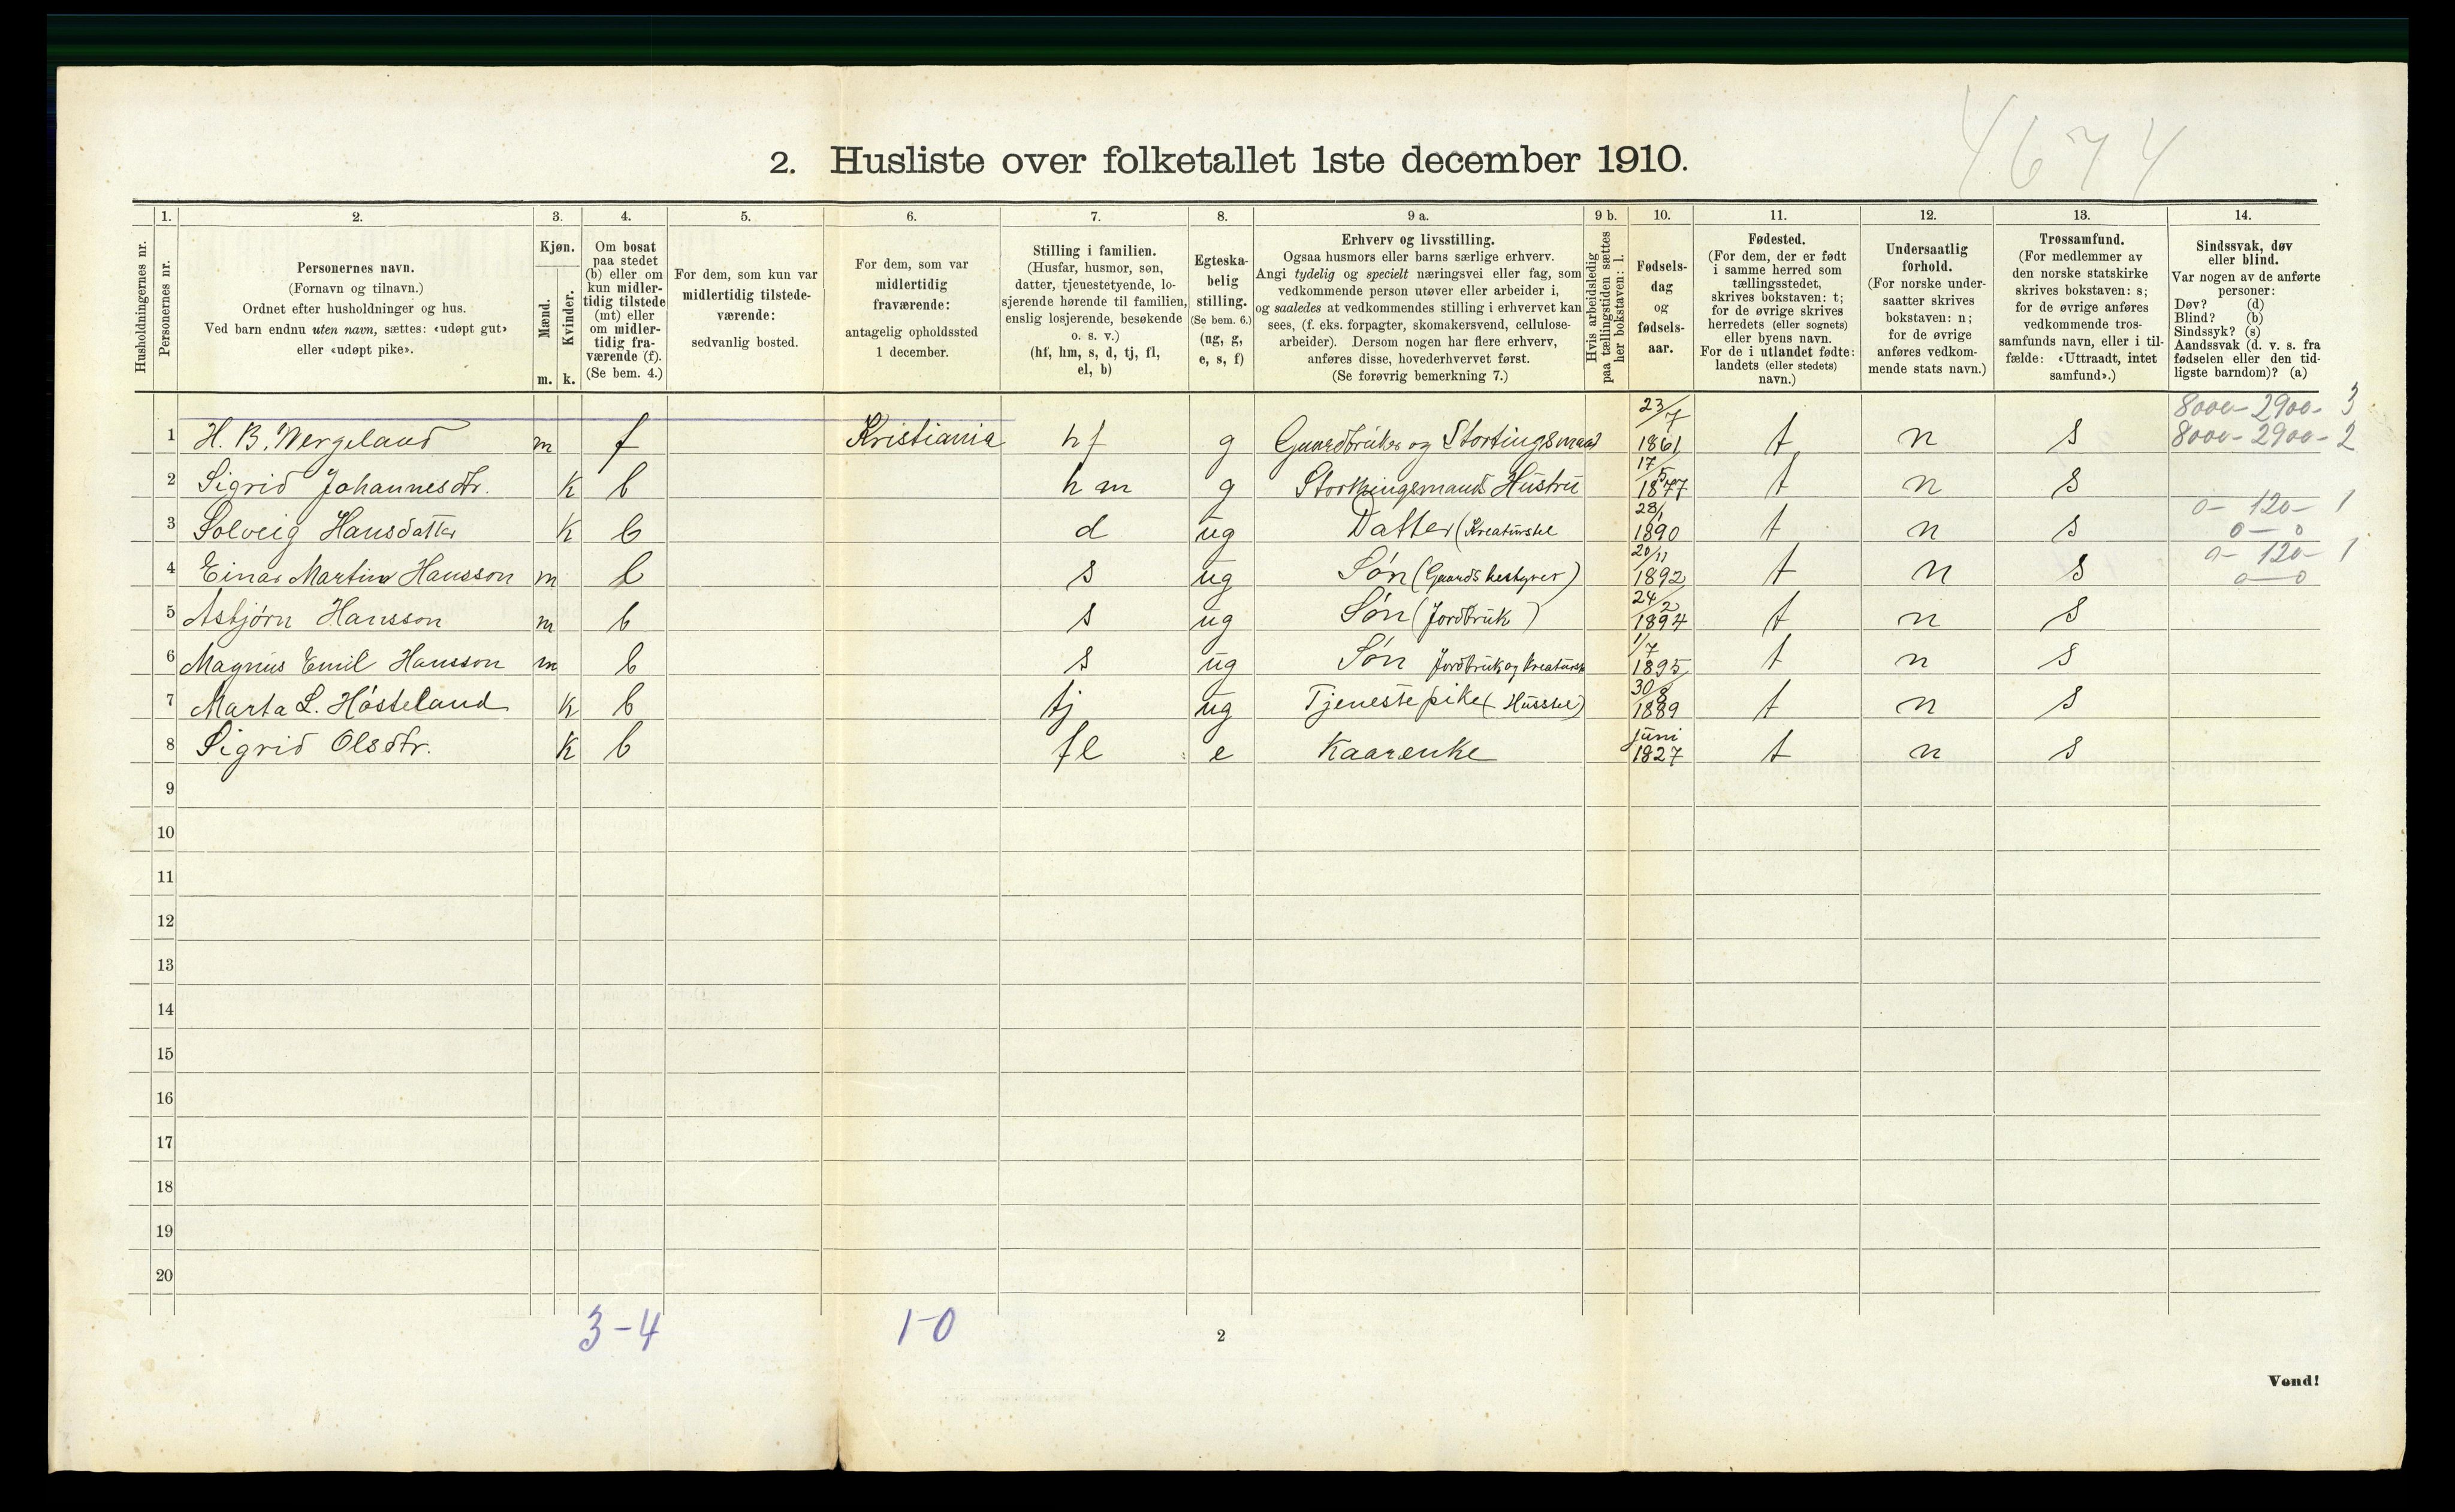 4674
2. Husliste over folketallet 1ste december 1910.
Husholdningernes nr.
1.
Personernes nr.
2.
Personernes navn.
(Fornavn og tilnavn.)
Ordnet efter husholdninger og hus.
Ved barn endnu uten navn, sættes: «udøpt gut»
eller «udøpt pike».
3.
Kjøn.
Mænd.
Kvinder.
m. k.
4.
Om bosat
paa stedet
(b) eller om
kun midler-
tidig tilstede
(mt) eller
om midler-
tidig fra-
værende (f).
(Se bem. 4.)
5.
For dem, som kun var
midlertidig tilstede-
værende:
sedvanlig bosted.
6.
For dem, som var
midlertidig
fraværende:
antagelig opholdssted
1 december.
7.
Stilling i familien.
(Husfar, husmor, søn,
datter, tjenestetyende, lo-
sjerende hørende til familien,
enslig losjerende, besøkende
o. s. v.)
(hf, hm, s, d, tj, fl,
el, b)
8.
Egteska-
belig
stilling.
(Se bem. 6.)
(ug, g,
e, s, f)
9 a.
Erhverv og livsstilling.
Ogsaa husmors eller barns særlige erhverv.
Angi tydelig og specielt næringsvei eller fag, som
vedkommende person utøver eller arbeider i,
og saaledes at vedkommendes stilling i erhvervet kan
sees, (f. eks. forpagter, skomakersvend, cellulose-
arbeider). Dersom nogen har flere erhverv,
anføres disse, hovederhvervet først.
(Se forøvrig bemerkning 7.)
9 b.
Hvis arbeidsledig
paa tællingstiden sættes
her bokstaven: l.
10.
Fødsels-
dag
og
fødsels-
aar.
11.
Fødested.
(For dem, der er født
i samme herred som
tællingsstedet,
skrives bokstaven: t;
for de øvrige skrives
herredets (eller sognets)
eller byens navn.
For de i utlandet fødte:
landets (eller stedets)
navn.)
12.
Undersaatlig
forhold.
(For norske under-
saatter skrives
bokstaven: n;
for de øvrige
anføres vedkom-
mende stats navn.)
13.
Trossamfund.
(For medlemmer av
den norske statskirke
skrives bokstaven: s;
for de øvrige anføres
vedkommende tros-
samfunds navn, eller i til-
fælde: «Uttraadt, intet
samfund».)
14.
Sindssvak, døv
eller blind.
Var nogen av de anførte
personer:
Døv? (d)
Blind? (b)
Sindssyk? (s)
Aandssvak (d. v. s. fra
fødselen eller den tid-
ligste barndom)? (a)
1 H. B. Wergeland m f Kristiania hf g Gaardbruker og Stortingsmand 23/7 1861 t n s 8000 - 2900 - 3
8000 - 2900 - 2
2 Sigrid Johannesdtr. k b hm g Storthingsmands Hustru 17/5 1877 t n s
3 Solveig Hansdatter k b d ug Datter (Kreaturstel 28/1 1890 t n s 0 - 120 - 1
0 - 0
4 Einar Martin Hansson m b s ug Søn (Gaardsbestyrer) 20/11 1892 t n s 0 - 120 - 1
0 - 0
5 Asbjørn Hansson m b s ug Søn (Jordbruk) 24/2 1894 t n s
6 Magnus Emil Hansson m b s ug Søn Jordbruk og kreaturst 1/7 1895 t n s
7 Marta L. Høsteland k b tj ug Tjenestepike (Husstel) 30/8 1889 t n s
8 Sigrid Olsdtr. k b fl e Kaarenke juni 1827 t n s
9
10
11
12
13
14
15
16
17
18
19
20
3-4 1-0
2
Vend!